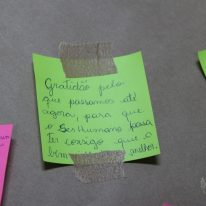 Gratidão pelo
que passamos até
agora, para que
o Ser Humano possa
ter consigo que o
bem melhor.